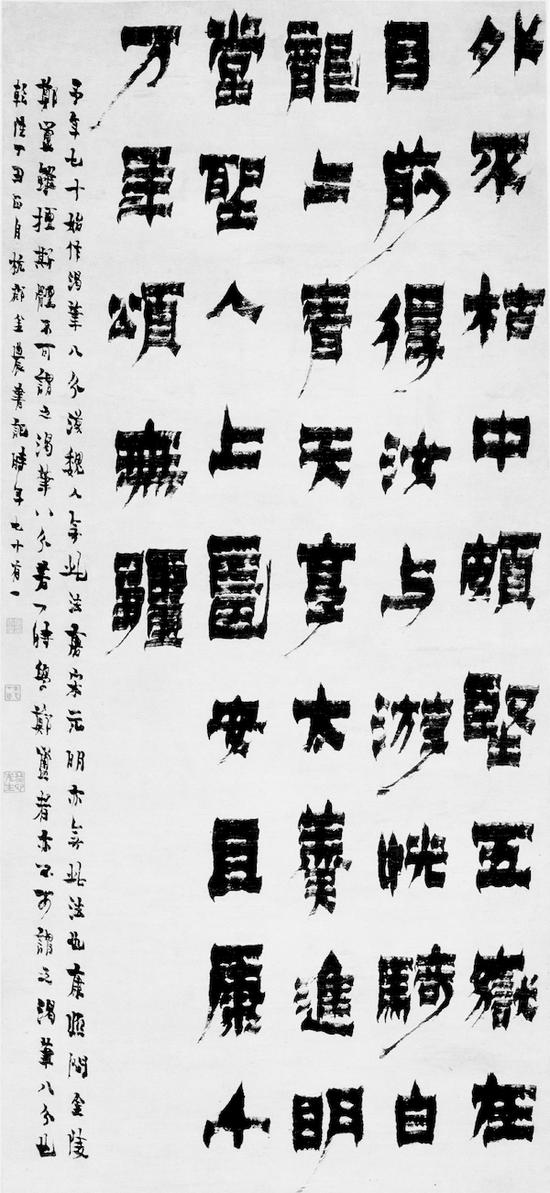 外枯中頗堅五嶽在
目前得汝与游恍騎白
龍上青天享太羹進明
堂聖人上圖安且康千
万年頌無疆
予年七十始作渴筆八分漢魏人無此法唐宋元明亦無此法也康熙間金陵
鄭簠雖擅斯體不可謂之渴筆八分若一時學鄭簠者亦不可謂之渴筆八分也
乾隆丁丑正月杭郡金農筆記時年七十有一